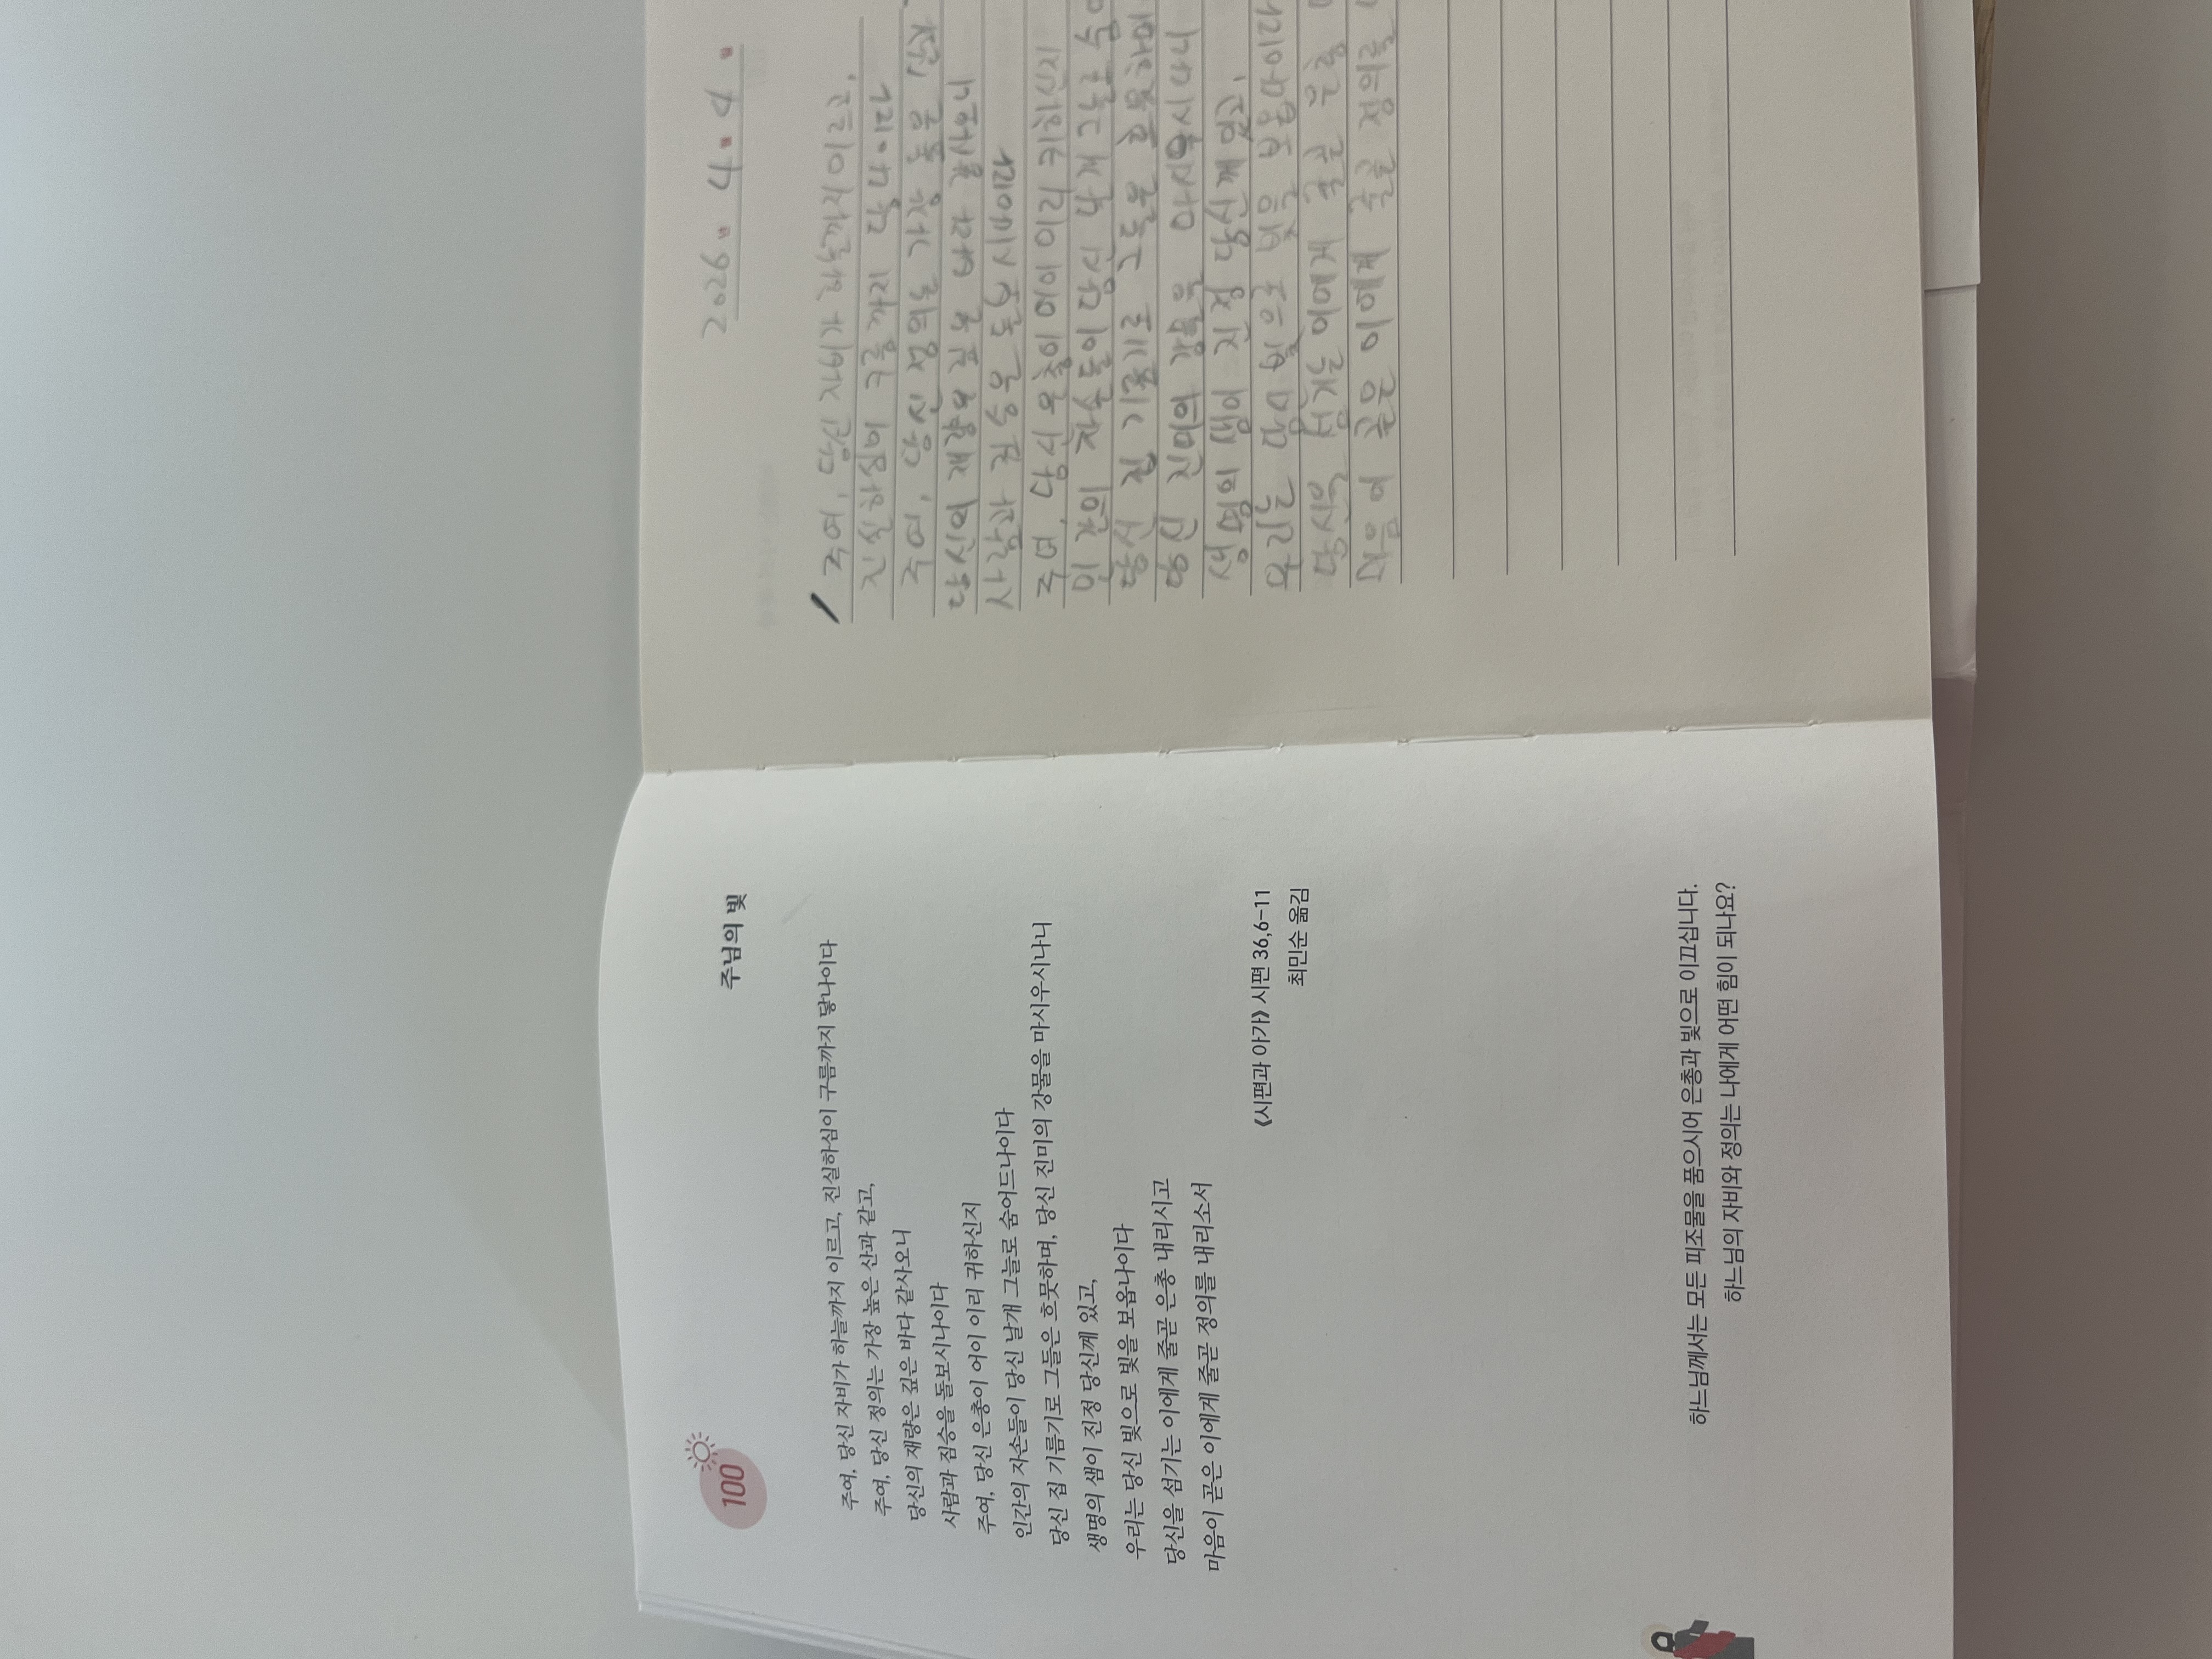 100
주님의 빛
주여, 당신 자비가 하늘까지 이르고, 진실하심이 구름까지 닿나이다
주여, 당신 정의는 가장 높은 산과 같고,
당신의 재량은 깊은 바다 같사오니
사람과 짐승을 돌보시나이다
주여, 당신 은총이 어이 이리 귀하신지
인간의 자손들이 당신 날개 그늘로 숨어드나이다
당신 집 기름기로 그들은 흐뭇하며, 당신 진미의 강물을 마시우시나니
생명의 샘이 진정 당신께 있고,
우리는 당신 빛으로 빛을 보옵나이다
당신을 섬기는 이에게 줄곧 은총 내리시고
마음이 곧은 이에게 줄곧 정의를 내리소서
《시편과 아가》 시편 36,6-11
최민순 옮김
하느님께서는 모든 피조물을 품으시어 은총과 빛으로 이끄십니다.
하느님의 자비와 정의는 나에게 어떤 힘이 되나요?
2026. 4. 4.
주여, 당신 자비가 하늘까지 이르고,
진실하심이 구름까지 닿나이다
주여, 당신 정의는 가장 높은 산과
당신의 재량은 깊은 바다 같사오니
사람과 짐승은 돌보시나이다
주여, 당신 은총이 어이 이리 귀하신지
인간의 자손들이 당신 날개 그늘로 숨어
당신 집 기름기로 그들은 흐뭇하며
당신 진미의 강물을 마시우시나니
생명의 샘이 진정 당신께 있고,
우리는 당신 빛으로 빛을 보옵나이다
당신을 섬기는 이에게 줄곧 은총
마음이 곧은 이에게 줄곧 정의를